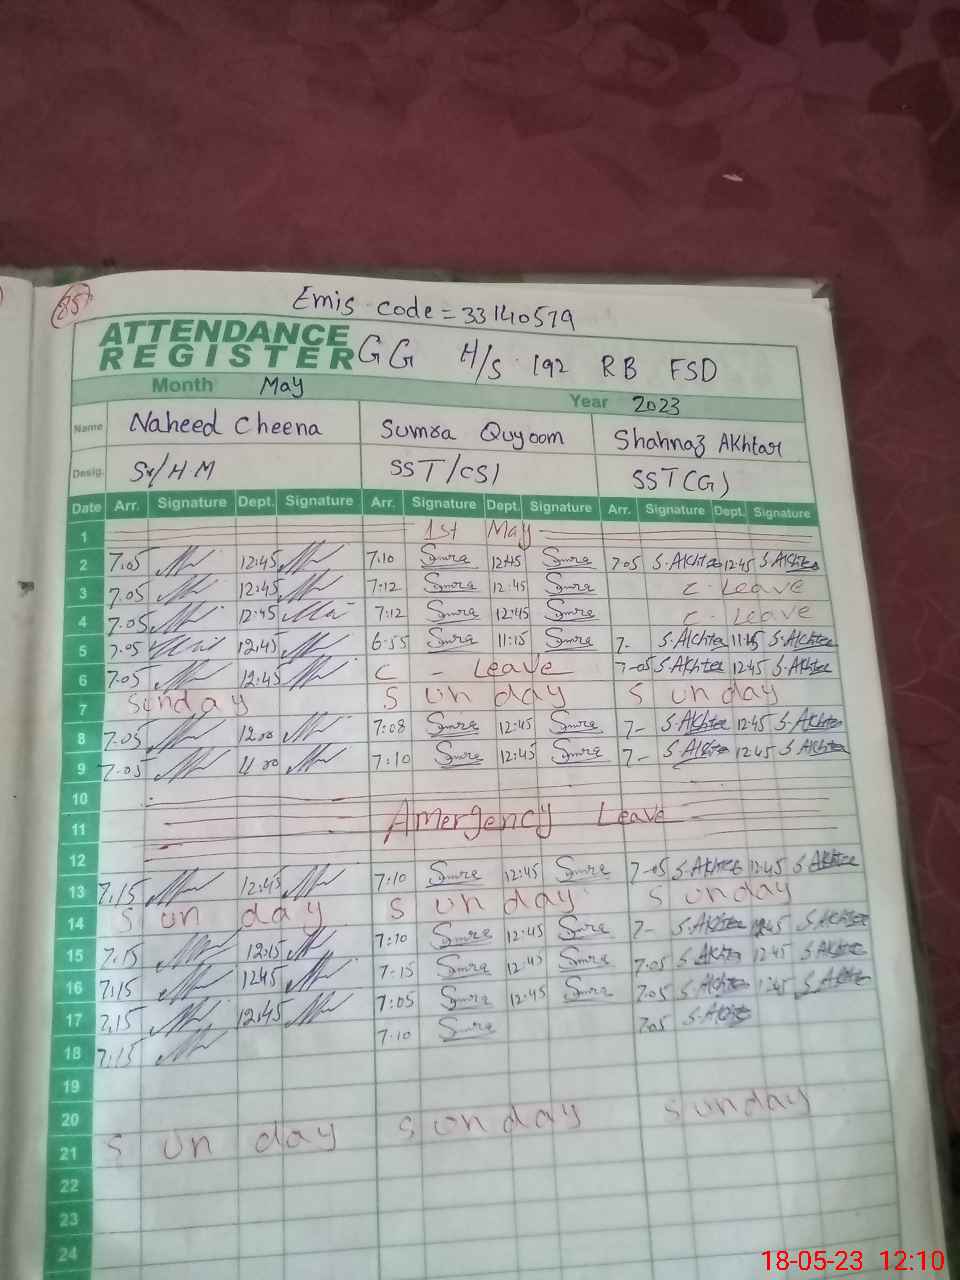 85
Emis code = 33140519
ATTENDANCE
REGISTER GG H/S 192 RB FSD
Month May Year 2023
Name Naheed Cheena Sumra Quyoom Shahnaz AKhtar
Desig. Sr/HM SST/CS) SST(G)
Date Arr. Signature Dept. Signature Arr. Signature Dept. Signature Arr. Signature Dept. Signature
1 1st May
2 7.05 12:45 7:10 Sumra 12:45 Sumra 7 05 S.AKhtar 12:45 S.AKhtar
3 7.05 12:45 7:12 Sumra 12:45 Sumra C - Leave
4 7.05 12:45 7:12 Sumra 12:45 Sumra C - Leave
5 7.05 12:45 6:55 Sumra 11:15 Sumra 7- S.AKhtar 11:15 S.AKhtar
6 7.05 12:45 C - Leave 7-05 S.AKhtar 12:45 S.AKhtar
7 Sunday Sunday Sunday
8 7.05 12.00 7:08 Sumra 12:45 Sumra 7- S.AKhtar 12:45 S.AKhtar
9 7.05 11.00 7:10 Sumra 12:45 Sumra 7- S.AKhtar 12:45 S.AKhtar
10
11 Amergency Leave
12
13 7.15 12:45 7:10 Sumra 12:45 Sumra 7-05 S.AKhtar 12:45 S.AKhtar
14 Sunday Sunday Sunday
15 7.15 12:15 7:10 Sumra 12:45 Sumra 7- S.AKhtar 12:45 S.AKhtar
16 7:15 12:45 7:15 Sumra 12:45 Sumra 7.05 S.AKhtar 12:45 S.AKhtar
17 7.15 12:45 7:05 Sumra 12:45 Sumra 7.05 S.AKhtar 12:45 S.AKhtar
18 7:15 7:10 Sumra 7.05 S.AKhtar
19
20
21 Sunday Sunday Sunday
22
23
24
18-05-23 12:10